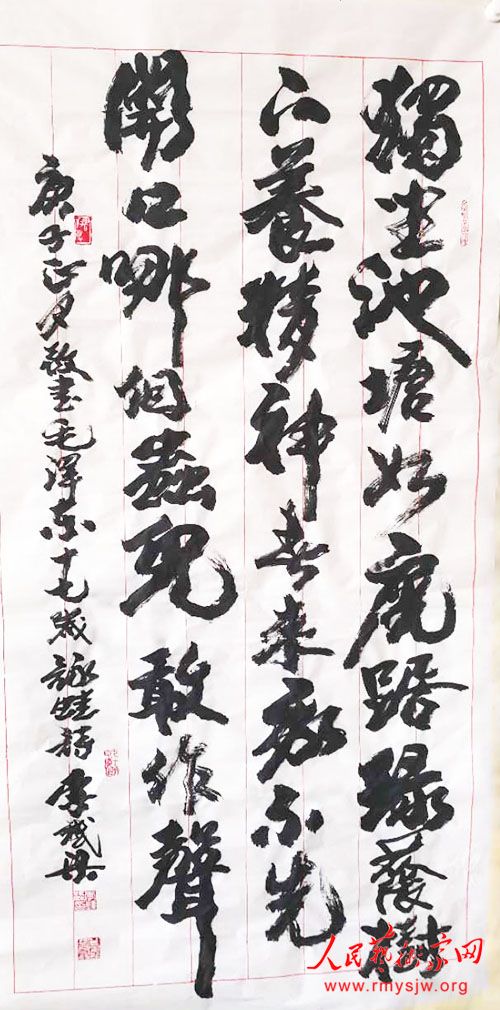 獨坐池塘如虎踞綠蔭樹
下養精神春來我不先
開口哪個蟲兒敢作聲
庚子正月敬書毛澤东十七歲詠蛙詩李
人民藝術家网
www.rmysjw.org